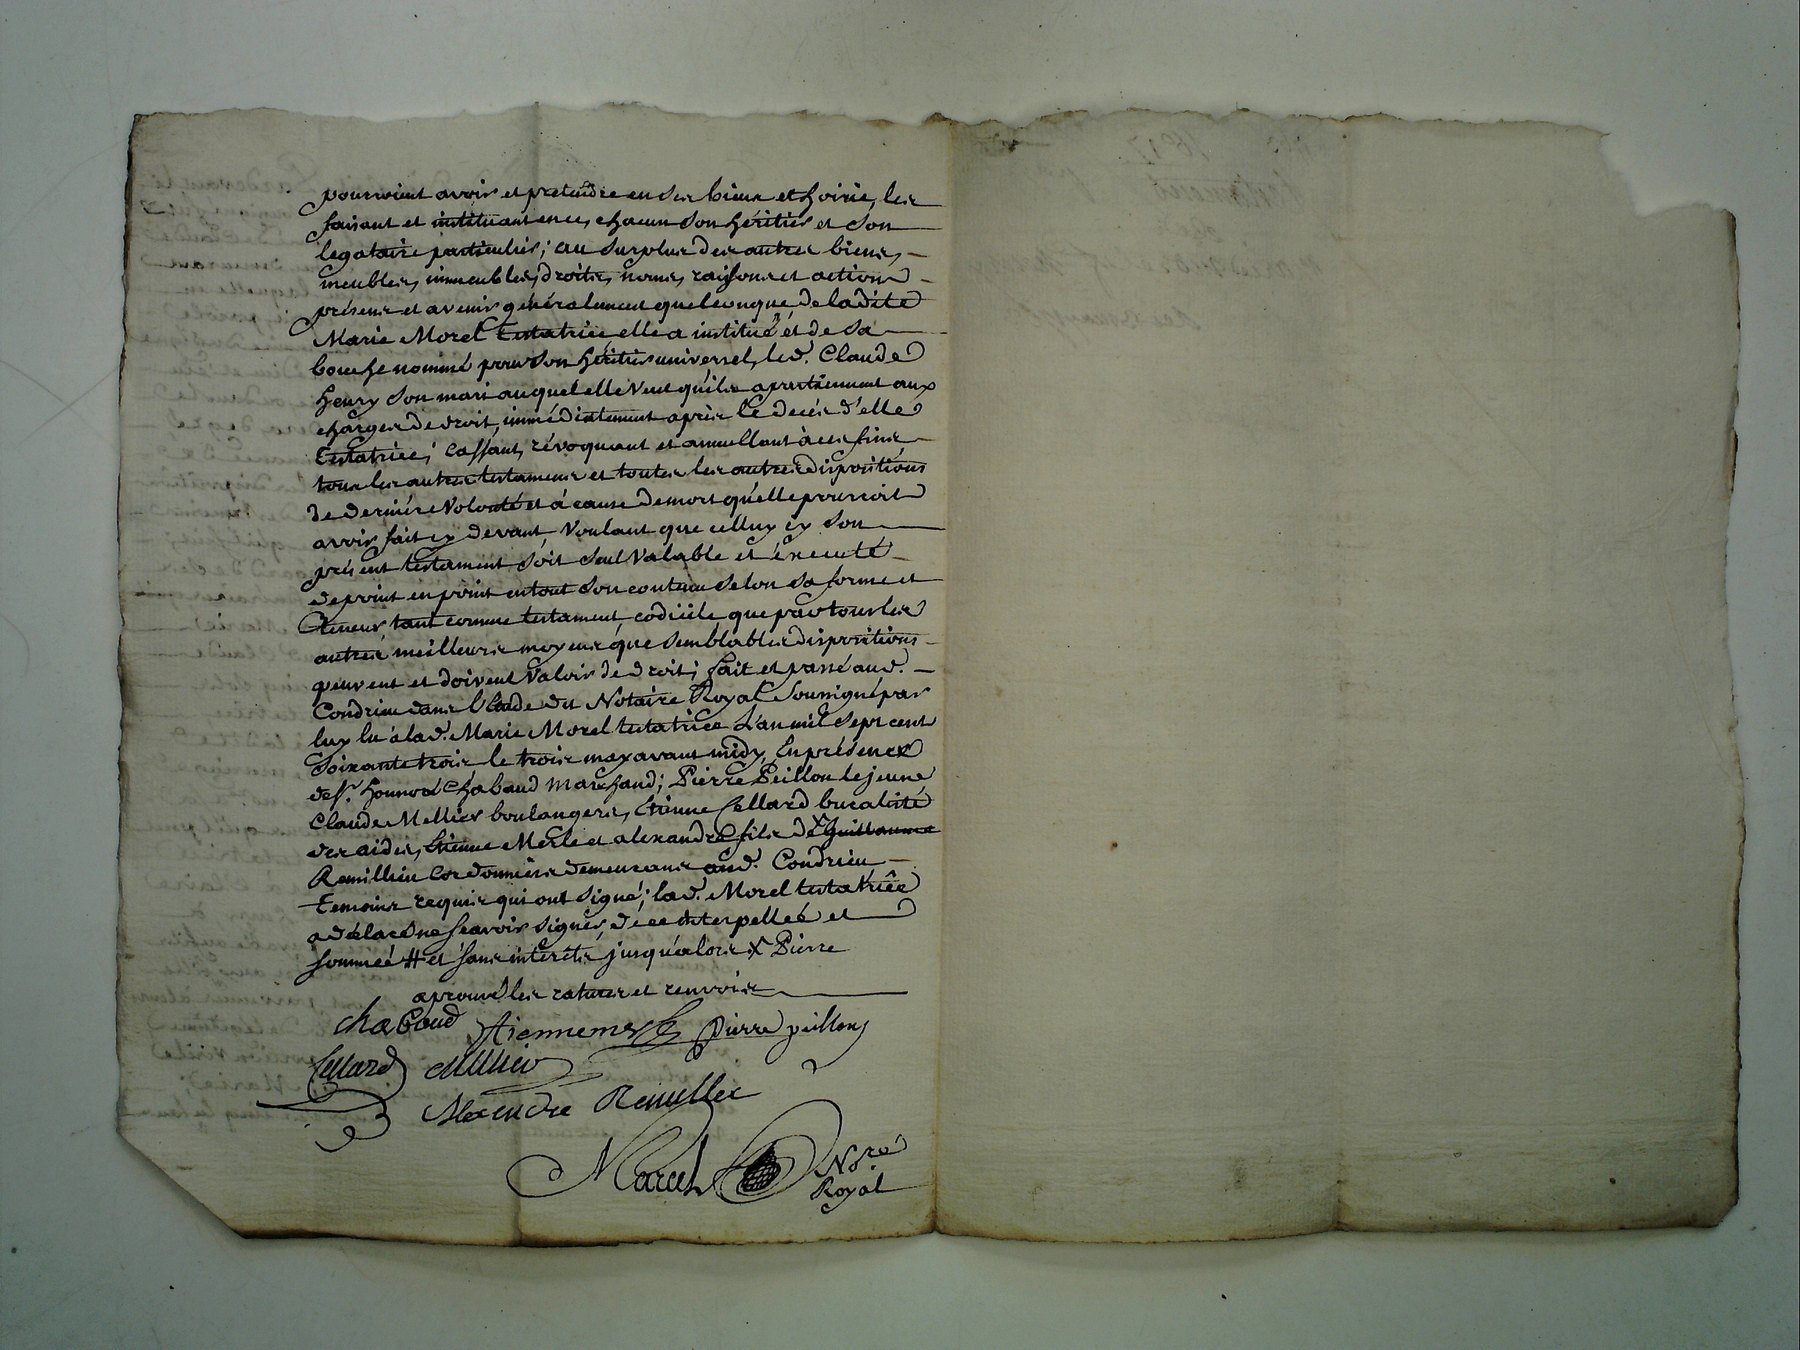 pourroient avoir et pretendre en ses biens et hoirie, les
faisant et instituant en ce, chacun son héritier et son
legataire particulier; au surplus des autres biens,
meubles, immeubles, droits, noms, raisons et actions
présens et avenir généralement quelconque de ladite
Marie Morel Testatrice, elle a institué et de sa
bouche nommé pour son héritier universel, led. Claude
henry son mari auquel elle veut qu'ils apartiennent aux
charges de droit, immédiatement après le decés d'elle
Testatrice; cassant, révoquant et annullant à ces fins
tous les autres testamens et toutes les autres dispositions
de dernière volonté et à cause de mort qu'elle pourroit
avoir fait cy devant, voulant que celluy cy son
présent testament soit seul valable et éxecuté
de point en point en tout son contenu selon sa forme et
teneur, tant comme testament, codicile que par tous les
autres meilleurs moyens que semblables dispositions
peuvent et doivent valoir de droit; fait et passé aud.
Condrieu dans l'étude du Notaire Royal soussigné par
luy lu à lad. Marie Morel testatrice L'an mil sept cent
soixante trois le trois may avant midy, En présence
de sr. honnoré Chabaud marchand; Pierre Peillon le jeune
Claude Mellier boulangers, Etienne Cellard buraliste
des aides, Etienne Merle et alexandre fils de x Guillaume
Remillieu Cordonniers demeurans aud. Condrieu
temoins requis qui ont signé; lad. Morel testatrice
a déclaré ne sçavoir signer, de ce interpellée et
sommée # et sans interêts jusqu'alors x Pierre
aprouvé les ratures et renvois
chaboud tienne merle pierre peillon
Cellard Mellier
Alexendre Remellier
Marcel Nore.
Royal